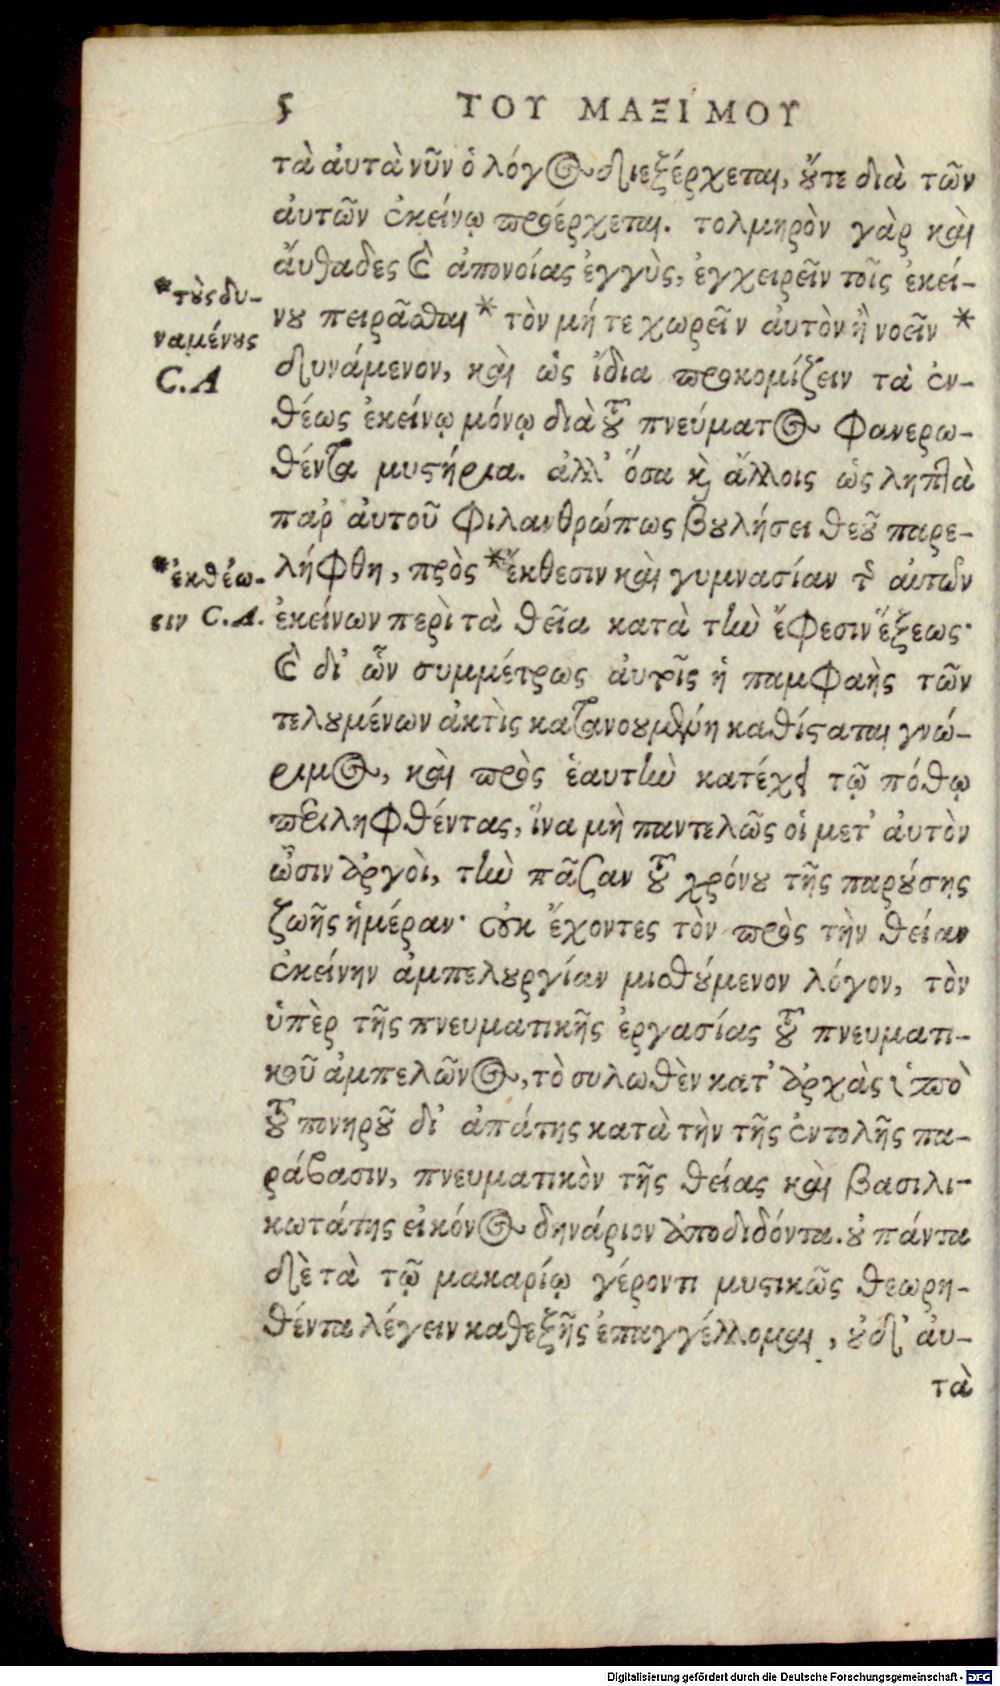 ϛ ΤΟΥ ΜΑΞΙΜΟΥ
τὰ ἀυτὰ νῦν ὁ λόγος διεξέρχεται, ȣ̓́τε διὰ τῶν
ἀυτῶν ἐκείνῳ προέρχεται. τολμηρὸν γὰρ καὶ
ἄυθαδες καὶ ἀπονοίας ἐγγὺς, ἐγχειρεῖν τοῖς ἐκεί-
νȣ πειρᾶσθαι * τὸν μή τε χωρεῖν ἀυτὸν ἢ νοεῖν *
δυνάμενον, καὶ ὡς ἴδια προκομίζειν τὰ ἐν-
θέως ἐκείνῳ μόνῳ διὰ τȣ͂ πνεύματος φανερω-
θέντα μυϛήρια. ἀλλ' ὅσα κὶ ἄλλοις ὡς ληπτὰ
παρ' ἀυτοῦ φιλανθρώπως βȣλήσει θεȣ͂ παρε-
λήφθη, πρὸς * ἔκθεσιν καὶ γυμνασίαν τ̃ ἀυτῶν
ἐκείνων περὶ τὰ θεῖα κατὰ τὴν ἔφεσιν ἕξεως·
καὶ δι' ὧν συμμέτρως ἀυτοῖς ἡ παμφαὴς τῶν
τελȣμένων ἀκτὶς κατανουμένη καθίϛαται γνώ-
ριμος, καὶ πρὸς ἑαυτὴν κατέχει τῷ πόθῳ
περιληφθέντας, ἵνα μὴ παντελῶς οἱ μετ' ἀυτὸν
ὦσιν ἀργοὶ, τὴν πᾶσαν τȣ͂ χρόνȣ τῆς παρȣ́σης
ζωῆς ἡμέραν· οὐκ ἔχοντες τὸν πρὸς τὴν θείαν
ἐκείνην ἀμπελȣργίαν μισθȣ́μενον λόγον, τὸν
ὑπὲρ τῆς πνευματικῆς ἐργασίας τȣ͂ πνευματι-
κοῦ ἀμπελῶνος, τὸ συλωθὲν κατ' ἀρχὰς ὑπὸ
τȣ͂ πονηρȣ͂ δι' ἀπάτης κατὰ τὴν τῆς ἐντολῆς πα-
ράβασιν, πνευματικὸν τῆς θείας καὶ βασιλι-
κωτάτης εἰκόνος δηνάριον ἀποδιδόντα. ȣ̓ πάντα
δὲ τὰ τῷ μακαρίῳ γέροντι μυϛικῶς θεωρη-
θέντα λέγειν καθεξῆς ἐπαγγέλλομαι, ȣ̓δ' ἀυ-
τὰ
*τȣ̀ς δυ-
ναμένȣς
C. A
*ἐκθέω-
σιν C. A.
Digitalisierung gefördert durch die Deutsche Forschungsgemeinschaft - DFG